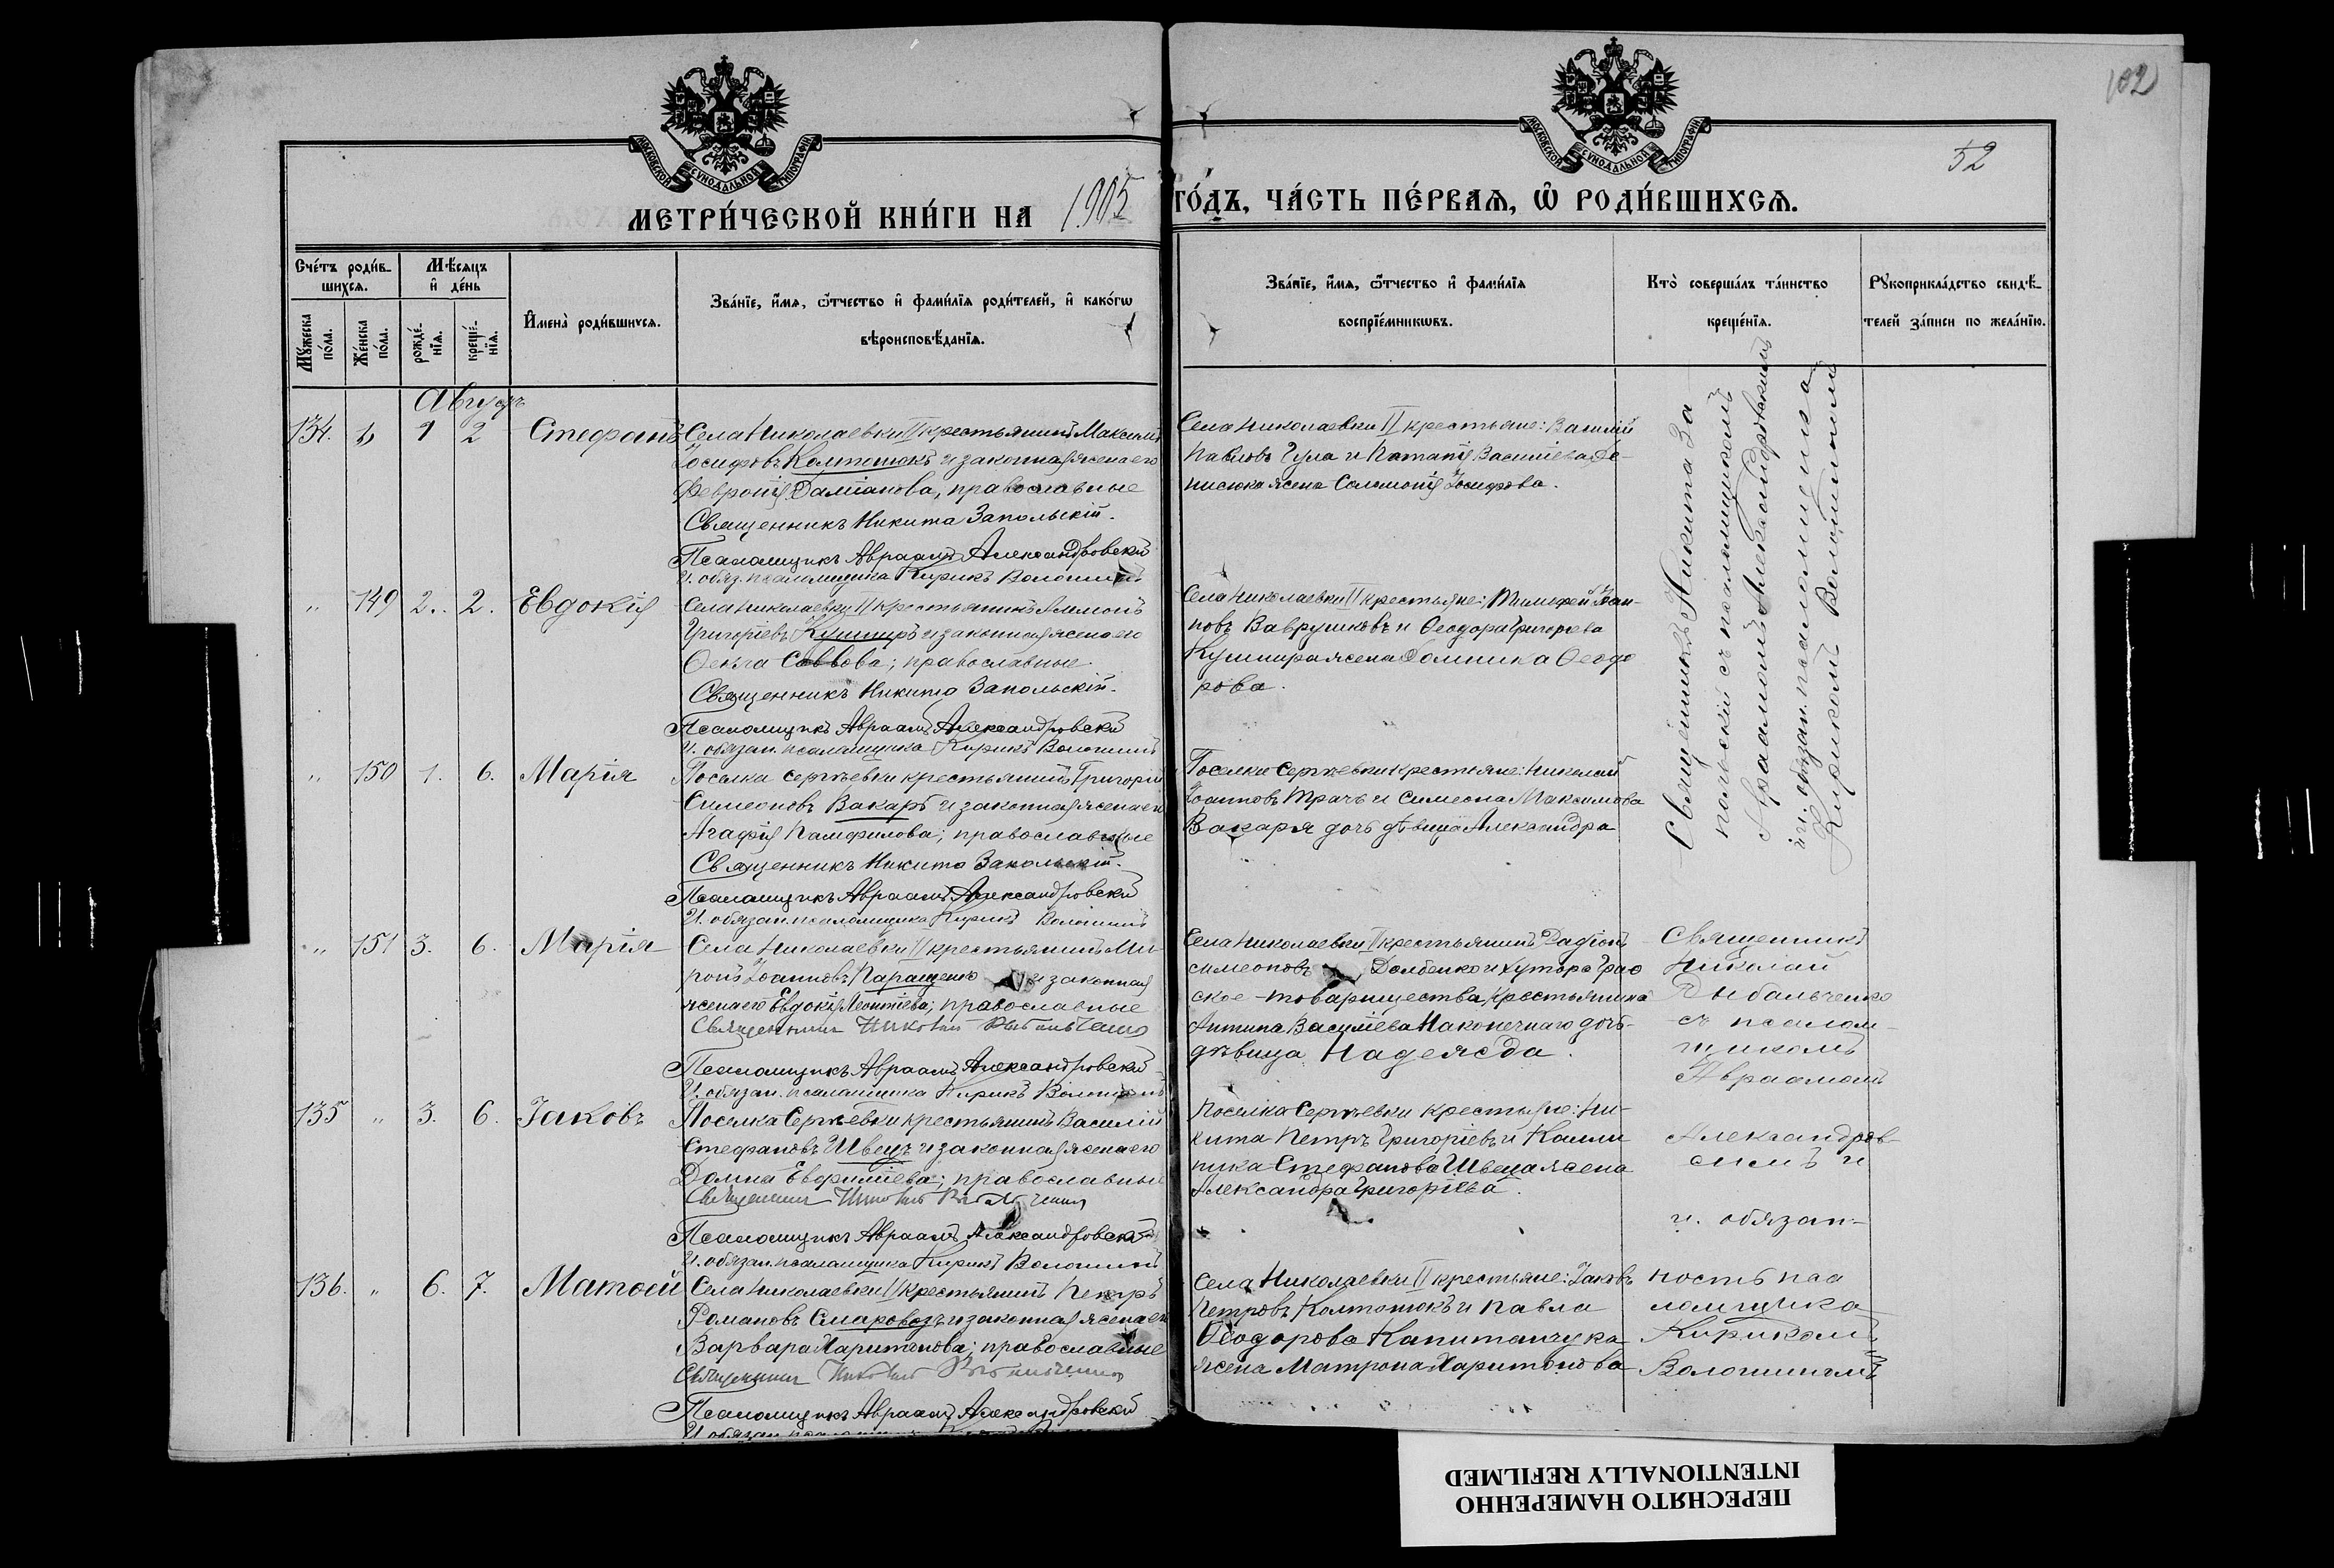 102
52
МОСКОВСКОЙ СѴНОДАЛЬНОЙ ТИПОГРАФІИ
МОСКОВСКОЙ СѴНОДАЛЬНОЙ ТИПОГРАФІИ
МЕТРИ́ЧЕСКОЙ КНИ́ГИ НА 1905 ГО́ДЪ, ЧА́СТЬ ПЕ́РВАѦ, Ѡ҆ РОДИ́ВШИХСѦ.
Сче́тъ роди́в-
шихсѧ.
Мꙋ́жеска по́ла.
Же́нска по́ла.
Мѣ́сѧцъ
и҆ де́нь
рожде́-
нїѧ.
креще́-
нїѧ.
И҆мена̀ роди́вшихсѧ.
Зва́нїе, и҆́мѧ, ѻ҆́тчество и҆ фами́лїѧ роди́телей, и҆ како́гѡ
вѣроисповѣ́данїѧ.
Зва́нїе, и҆́мѧ, ѻ҆́тчество и҆ фами́лїѧ
воспрїе́мникѡвъ.
Кто̀ соверша́лъ та́инство
креще́нїѧ.
Рꙋкоприкла́дство свидѣ́-
телей за́писи по жела́нїю.
Августъ
134. 1 2 Стефанъ
Села Николаевки II крестьянинъ Максимъ
Іосифовъ Колтотюкъ и законная жена его
Феврония Даміанова, православные
Священникъ Никита Запольскій.
Псаломщикъ Авраамъ Александровскій
И. обяз. псаломщика Кирикъ Волошинъ
Села Николаевки II крестьяне: Василій
Павловъ Гула и Потапія Василіева Де-
нисюка жена Соломонія Іосифова.
Священникъ Никита За
польскій съ псаломщикомъ
Авраамомъ Александровскимъ
и и. обязан. псаломщика
Кирикомъ Волошиномъ
" 149 2. 2. Евдокія
Села Николаевки II крестьянинъ Аммонъ
Григоріевъ Кушниръ и законная жена его
Ѳекла Саввова; православные.
Священникъ Никита Запольскій.
Псаломщикъ Авраамъ Александровскій
И. обязан. псаломщика Кирикъ Волошинъ
Села Николаевки II крестьяне: Тимофей Іоан-
новъВаврушковъ и Ѳеодора Григорьева
Кушнира жена Домника Ѳеодо
рова.
" 150 1. 6. Марія
Поселка Сергѣевки крестьянинъ Григорій
Симеоновъ Вакаръ и законная жена его
Агафія Памфилова; православные
Священникъ Никита Запольскій.
Псаломщикъ Авраамъ Александровскій
И. обязан. псаломщика Кирикъ Волошинъ
Поселка Сергѣевки крестьяне: Николай
Іоанновъ Трачъ и Симеона Максимова
Вакаря дочь дѣвица Александра
" 151 3. 6. Марія
Села Николаевки II крестьянинъ Ми-
ронъ Іоанновъ Паращенко и законная
жена его Евдокія Леонтіева; православные
Священникъ Николай Рыбальченко
Псаломщикъ Авраамъ Александровскій
И. обязан. псаломщика Кирикъ Волошинъ
Села Николаевки II крестьянинъ Радіонъ
Симеоновъ Долбенко и хутора Грао
ское товарищества крестьянина
Антипа Василіева Наконечнаго дочь-
дѣвица Надежда.
Священникъ
Николай
Рыбальченко
съ псалом-
щикомъ
Авраамомъ
Александров-
скимъ и
и. обязан-
ность пса
ломщика
Кирикомъ
Волошинымъ
135 " 3. 6. Іаковъ
Поселка Сергѣевки крестьянинъ Василій
Стефановъ Швецъ и законная жена его
Домна Евфиміева; православные
Священникъ Николай Рыбальченко
Псаломщикъ Авраамъ Александровскій
И. обязан. псаломщика Кирикъ Волошинъ
Поселка Сергѣевки крестьяне: Ни-
кита Петръ Григоріевъ и Калли
ника Стефанова Швеца жена
Александра Григоріева.
136. " 6. 7. Матѳей
Села Николаевки II крестьянинъ Петръ
Романовъ Смаровозъ и законная жена его
Варвара Харитонова; православные
Священникъ Николай Рыбальченко
Псаломщикъ Авраамъ Александровскій
Села Николаевки II крестьяне: Іаковъ
Петровъ Колтотюкъ и Павла
Ѳеодорова Капитанчука
жена Матрона Харитонова
ПЕРЕСНЯТО НАМЕРЕННО
INTENTIONALLY REFILMED